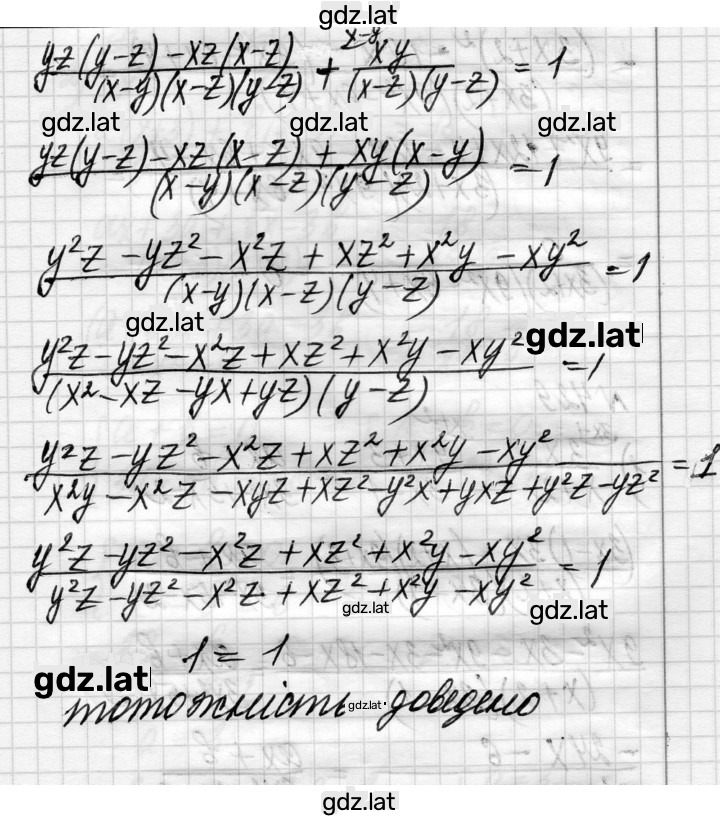 gdz.lat
x-y
yz(y-z)-xz(x-z) / (x-y)(x-z)(y-z) + xy / (x-z)(y-z) = 1
gdz.lat gdz.lat gdz.lat
yz(y-z)-xz(x-z)+xy(x-y) / (x-y)(x-z)(y-z) = 1
y²z - yz² - x²z + xz² + x²y - xy² / (x-y)(x-z)(y-z) = 1
gdz.lat
gdz.lat
y²z - yz² - x²z + xz² + x²y - xy² / (x² - xz - yx + yz)(y-z) = 1
y²z - yz² - x²z + xz² + x²y - xy² / x²y - x²z - xyz + xz² - y²x + yxz + y²z - yz² = 1
y²z - yz² - x²z + xz² + x²y - xy² / y²z - yz² - x²z + xz² + x²y - xy² = 1
gdz.lat gdz.lat
1 = 1
gdz.lat
тотожність gdz.lat доведено
gdz.lat